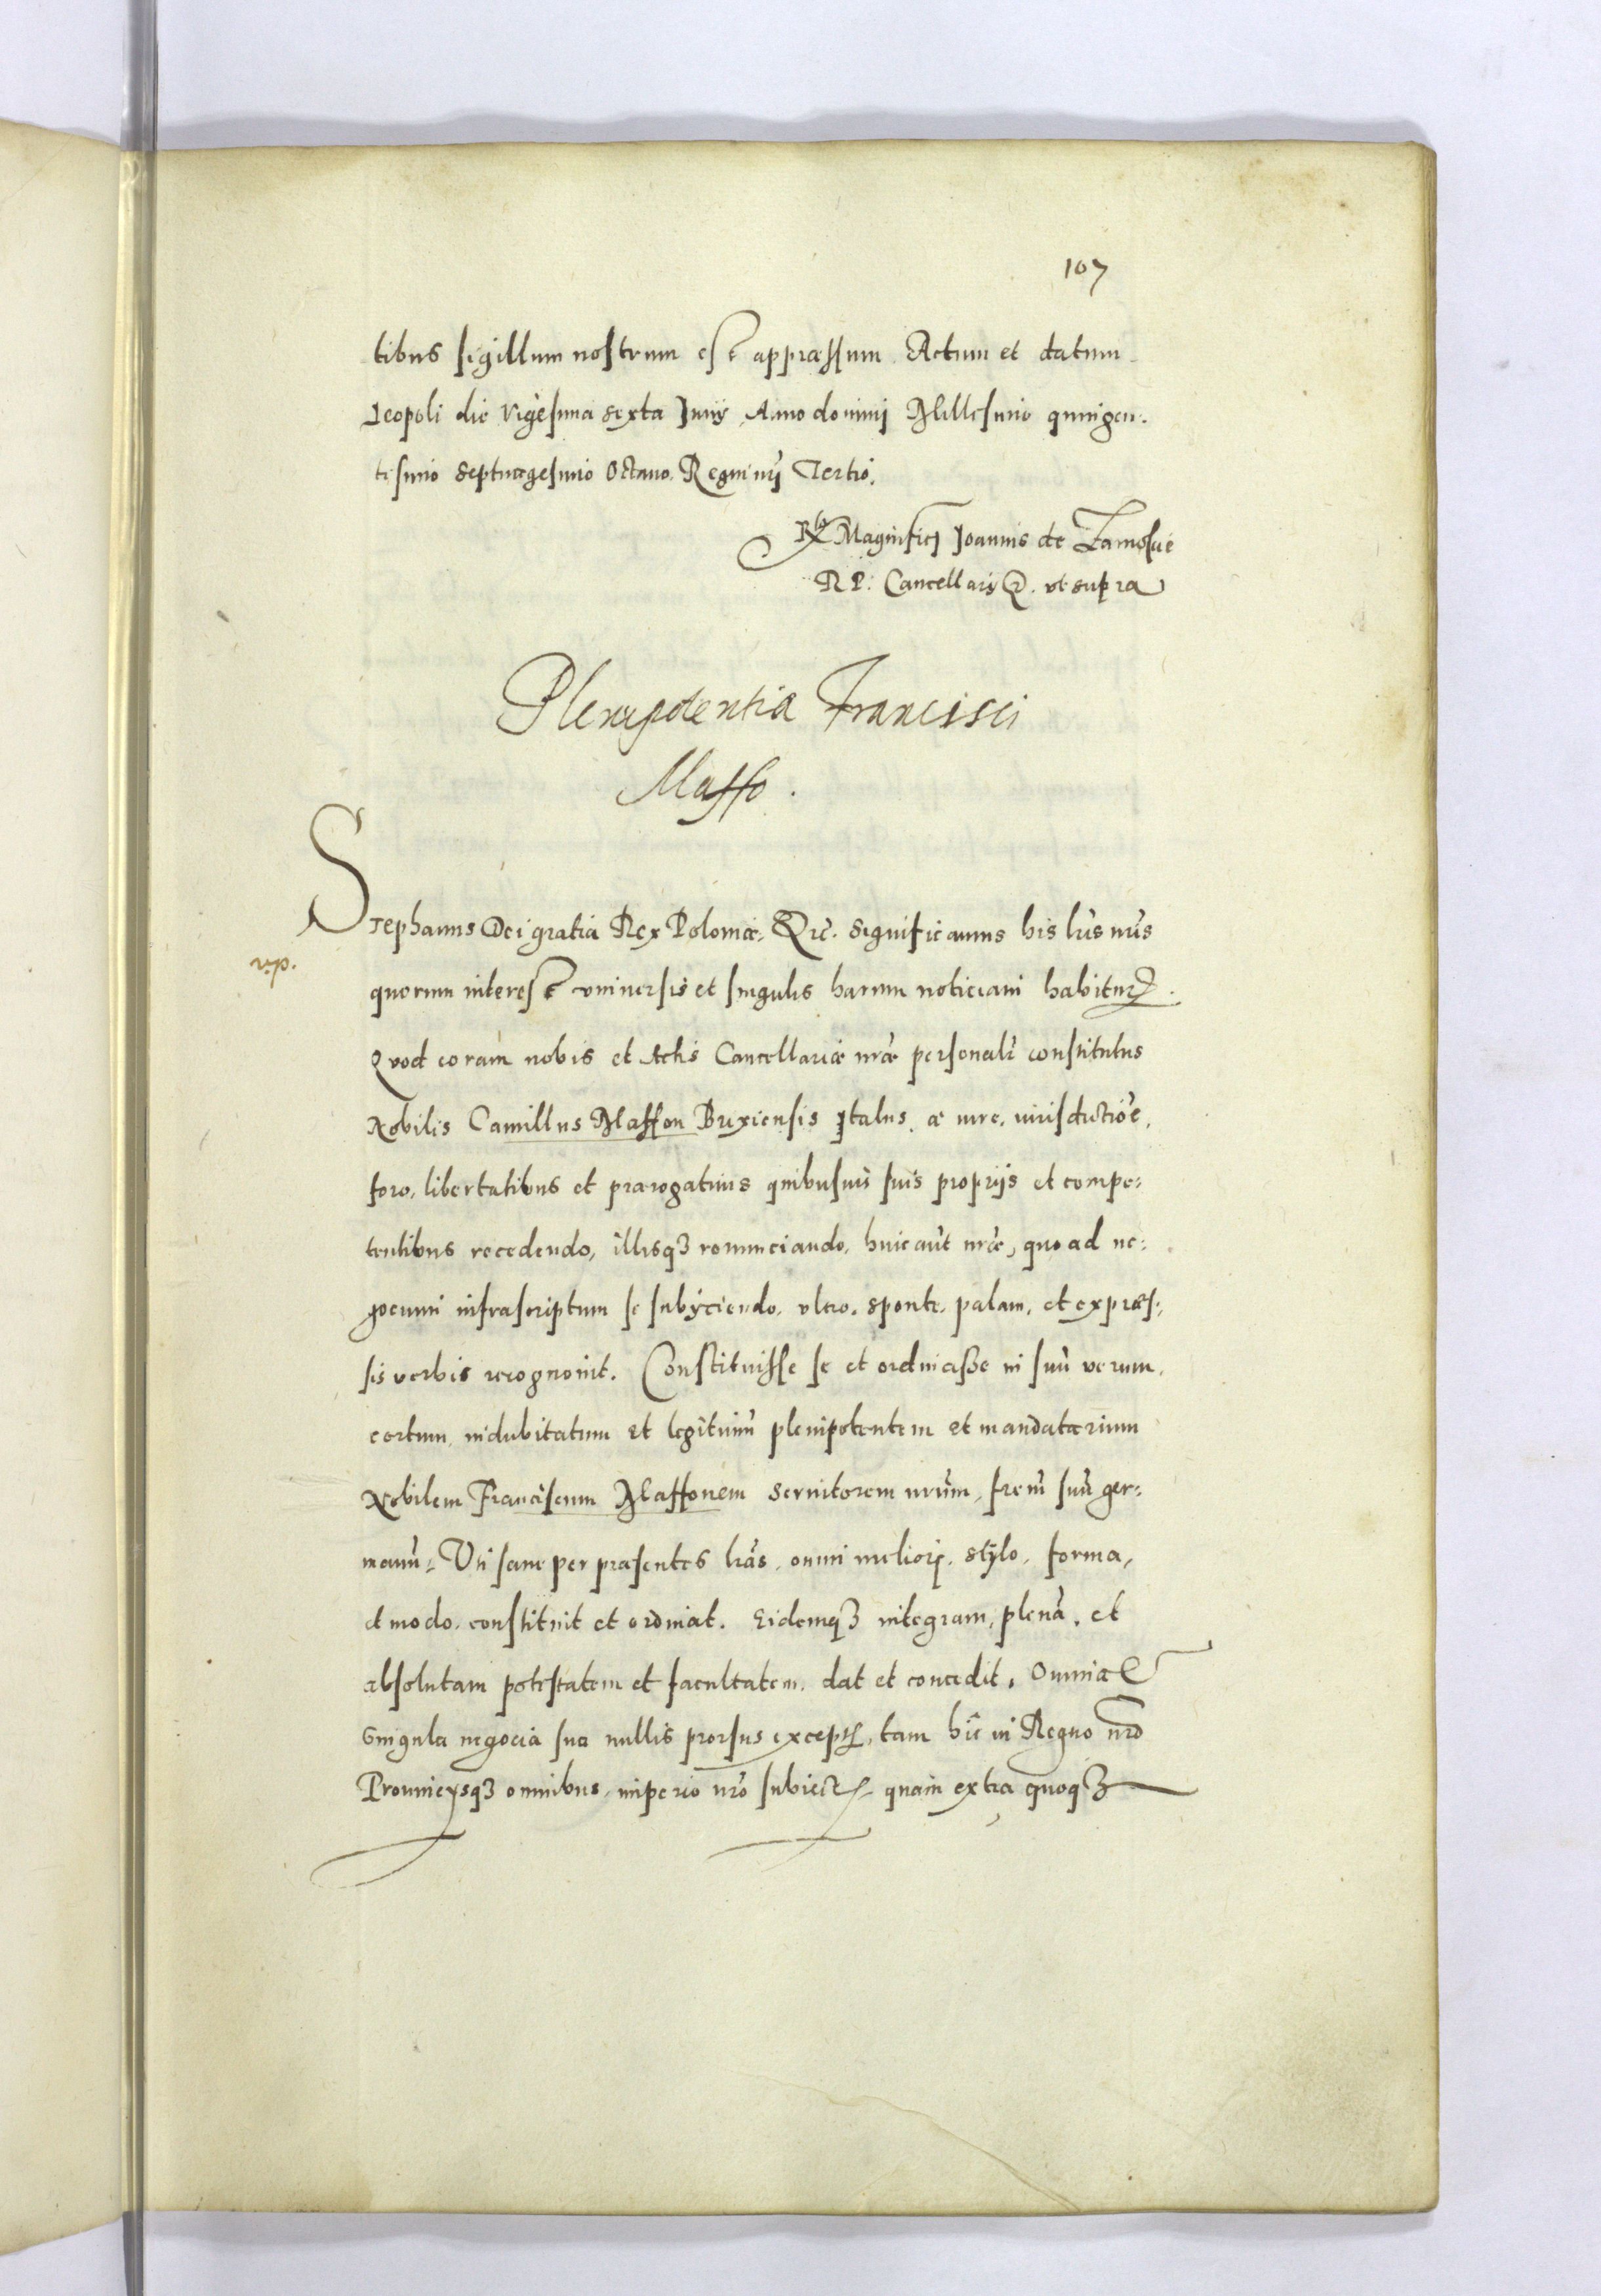 107
tibus sigillum nostrum est appraessum Actum et datum
Leopoli die vigesima sexta Junij Anno dominj Millesimo quingen.
tesimo septuagesimo Octauo. Regni nrj Tertio.
Magnificj Joannis de Zamoscie
R P. Cancellarij R. vt supra
Plenipotentia Francisci
Masso.
Stephanus Dei gratia Rex Poloniae. Significamus his lris nris
vip.
quorum interest vniuersis et singulis harum noticiam habitur.
Quod coram nobis et Actis Cancellariae nrae personalr constitutus
Nobilis Camillus Masson Brixiensis Italus, a iure, iurisdictioe,
foro, libertatibus et praerogatiuis quibusuis suis proprijs et compe:
tentibus recedendo, illisqȝ renunciando, huic aut nrae, quo ad ne:
gocium infrascriptum se subijciendo, vltro, sponte, palam, et expraes:
sis verbis recognouit. Constituisse se et ordinasse in suu verum,
certum, indubitatum et legitimu plenipotentem et mandatarium
Nobilem Franciscum Massonem seruitorem nrum, frem suu ger:
manu. Vti sane per praesentes lras, omni meliorj, stylo, forma,
et modo, constituit et ordinat. Eidemqȝ integram, plena, et
absolutam potestatem et facultatem, dat et concedit, Omnia et
singula negocia sua nullis prorsus except, tam hic in Regno nro
Prouincijsqȝ omnibus, imperio nro subiect, quam extra quoqȝ